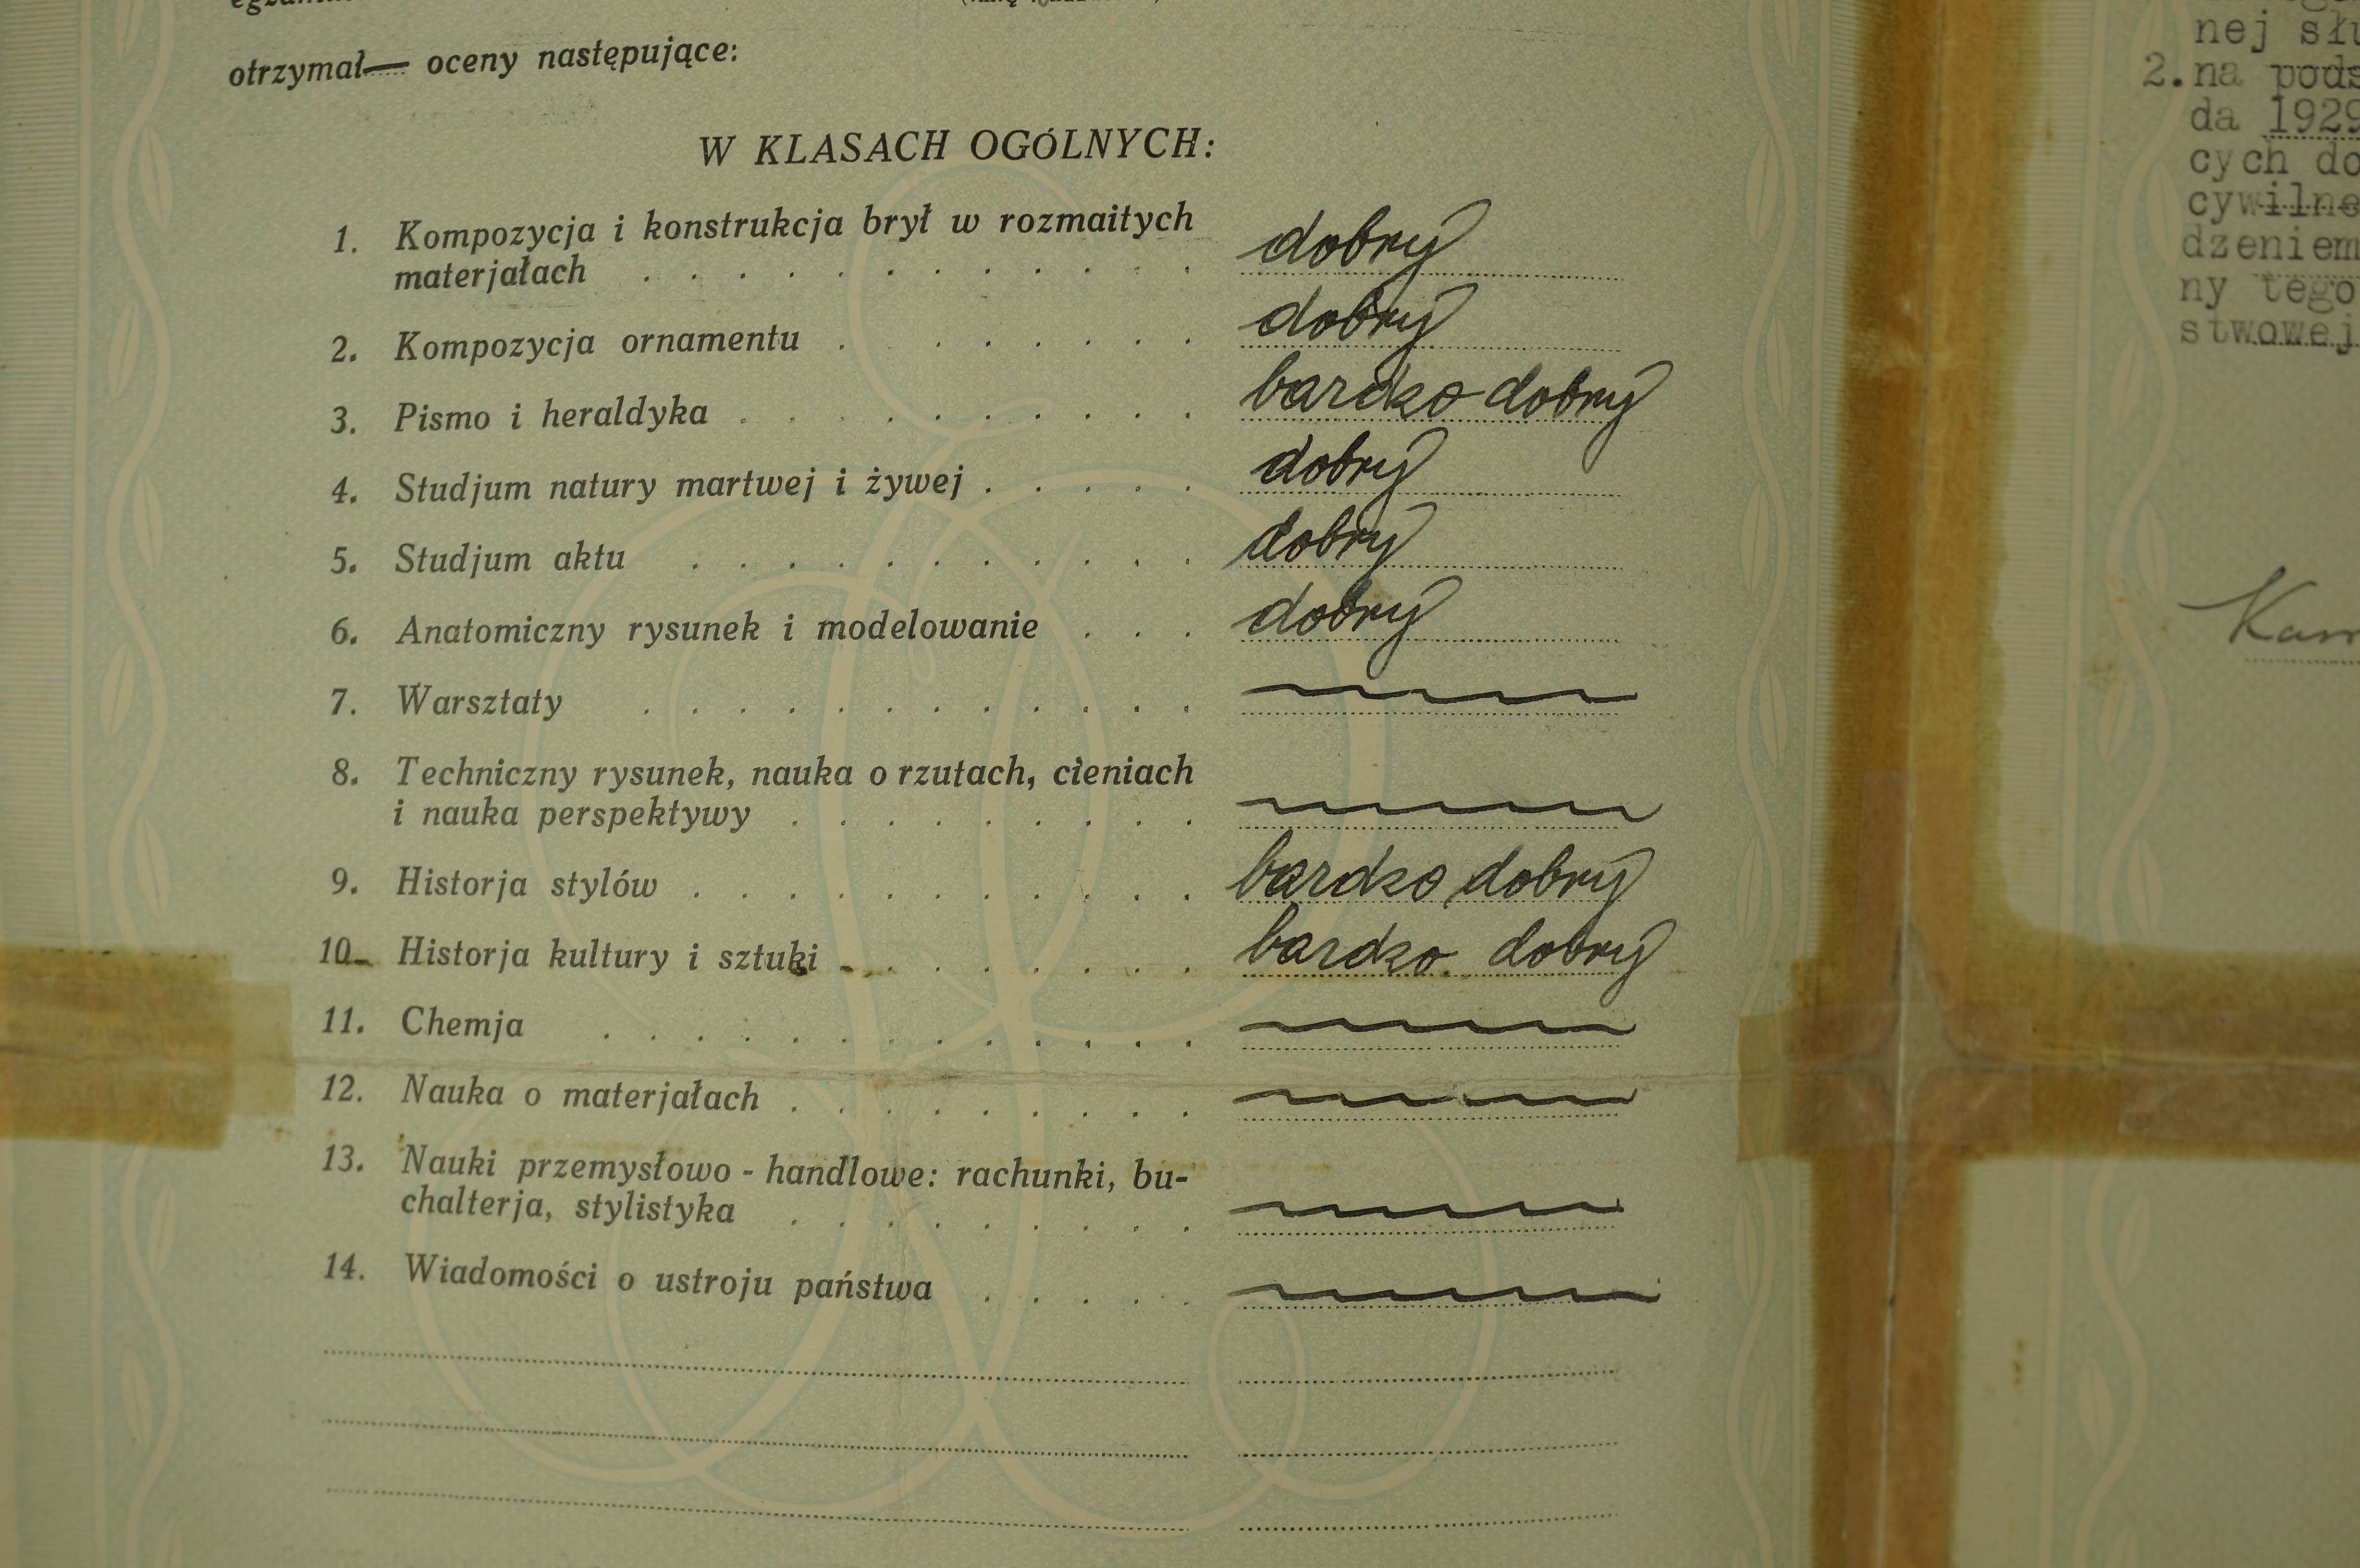 otrzymał— oceny następujące:
W KLASACH OGÓLNYCH:
1. Kompozycja i konstrukcja brył w rozmaitych
materjałach . . . . . . . . . . . . dobry
2. Kompozycja ornamentu . . . . . . . dobry
3. Pismo i heraldyka . . . . . . . . . . bardzo dobry
4. Studjum natury martwej i żywej . . . . . dobry
5. Studjum aktu . . . . . . . . . . . dobry
6. Anatomiczny rysunek i modelowanie . . . dobry
7. Warsztaty . . . . . . . . . . . .
8. Techniczny rysunek, nauka o rzutach, cieniach
i nauka perspektywy . . . . . . . . .
9. Historja stylów . . . . . . . . . . . bardzo dobry
10. Historja kultury i sztuki . . . . . . . . bardzo dobry
11. Chemja . . . . . . . . . . . . .
12. Nauka o materjałach . . . . . . . . .
13. Nauki przemysłowo - handlowe: rachunki, bu-
chalterja, stylistyka . . . . . . . . .
14. Wiadomości o ustroju państwa . . . . .
nej
2. na
da 1929
cych
dzeniem
ny tego
stwowej